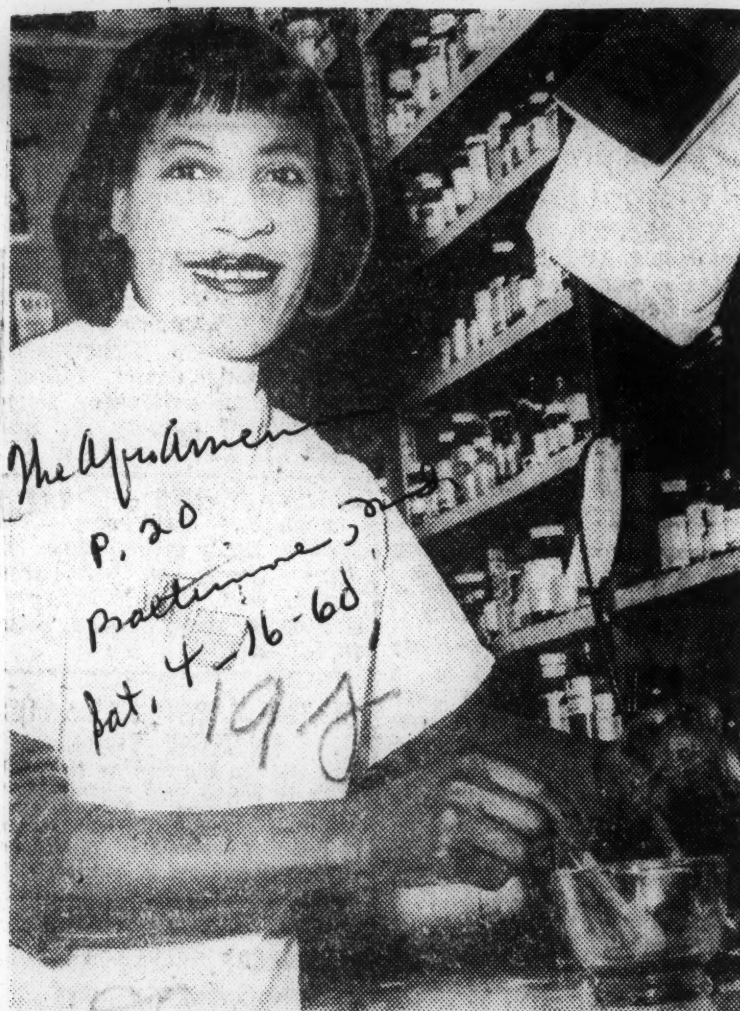 The Afro American
P. 20
Baltimore, Md.
Sat. 4-16-60
19